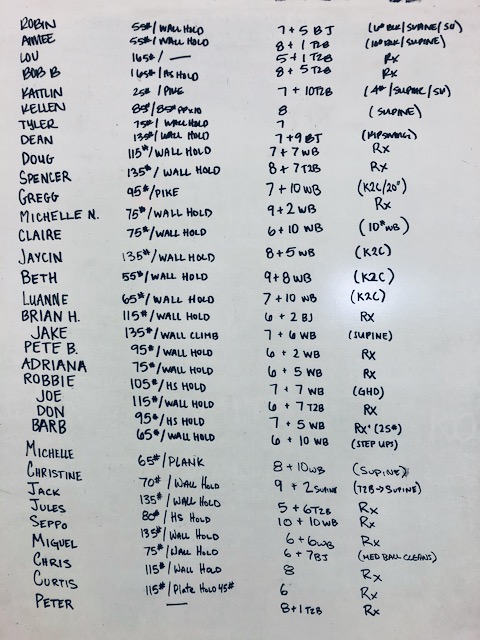 ROBIN 55#/WALL HOLD 7 + 5 BJ
AIMEE 55#/WALL HOLD 8 + 1 T2B
LOU 165#/ — 5 + 1 T2B Rx
BOB B 165#/HS HOLD 8 + 5 T2B Rx
KAITLIN 25#/PIKE 7 + 10 T2B
KELLEN 8 (SUPINE)
TYLER 75#/WALL HOLD 7
DEAN 135#/WALL HOLD 7 + 9 BJ
DOUG 115#/WALL HOLD 7 + 7 WB Rx
SPENCER 135#/WALL HOLD 8 + 7 T2B Rx
GREGG 95#/PIKE 7 + 10 WB (K2C/20")
MICHELLE N. 75#/WALL HOLD 9 + 2 WB Rx
CLAIRE 75#/WALL HOLD 6 + 10 WB (10# WB)
JAYCIN 135#/WALL HOLD 8 + 5 WB (K2C)
BETH 55#/WALL HOLD 9 + 8 WB (K2C)
LUANNE 65#/WALL HOLD 7 + 10 WB (K2C)
BRIAN H. 115#/WALL HOLD 6 + 2 BJ Rx
JAKE 135#/WALL CLIMB 7 + 6 WB (SUPINE)
PETE B. 95#/WALL HOLD 6 + 2 WB Rx
ADRIANA 75#/WALL HOLD 6 + 5 WB Rx
ROBBIE 105#/HS HOLD 7 + 7 WB (GHD)
JOE 115#/WALL HOLD 6 + 7 T2B Rx
DON 95#/HS HOLD 7 + 5 WB Rx+ (25#)
BARB 65#/WALL HOLD 6 + 10 WB (STEP UPS)
MICHELLE 65#/PLANK 8 + 10 WB (SUPINE)
CHRISTINE 70#/WALL HOLD 9 + 2 SUPINE (T2B→SUPINE)
JACK 135#/WALL HOLD 5 + 6 T2B Rx
JULES 80#/HS HOLD 10 + 10 WB Rx
SEPPO 135#/WALL HOLD 6 + 6 WB Rx
MIGUEL 75#/WALL HOLD 6 + 7 BJ (MED BALL CLEANS)
CHRIS 115#/WALL HOLD 8 Rx
CURTIS 115#/Plate HOLD 45# 6 Rx
PETER — 8 + 1 T2B Rx